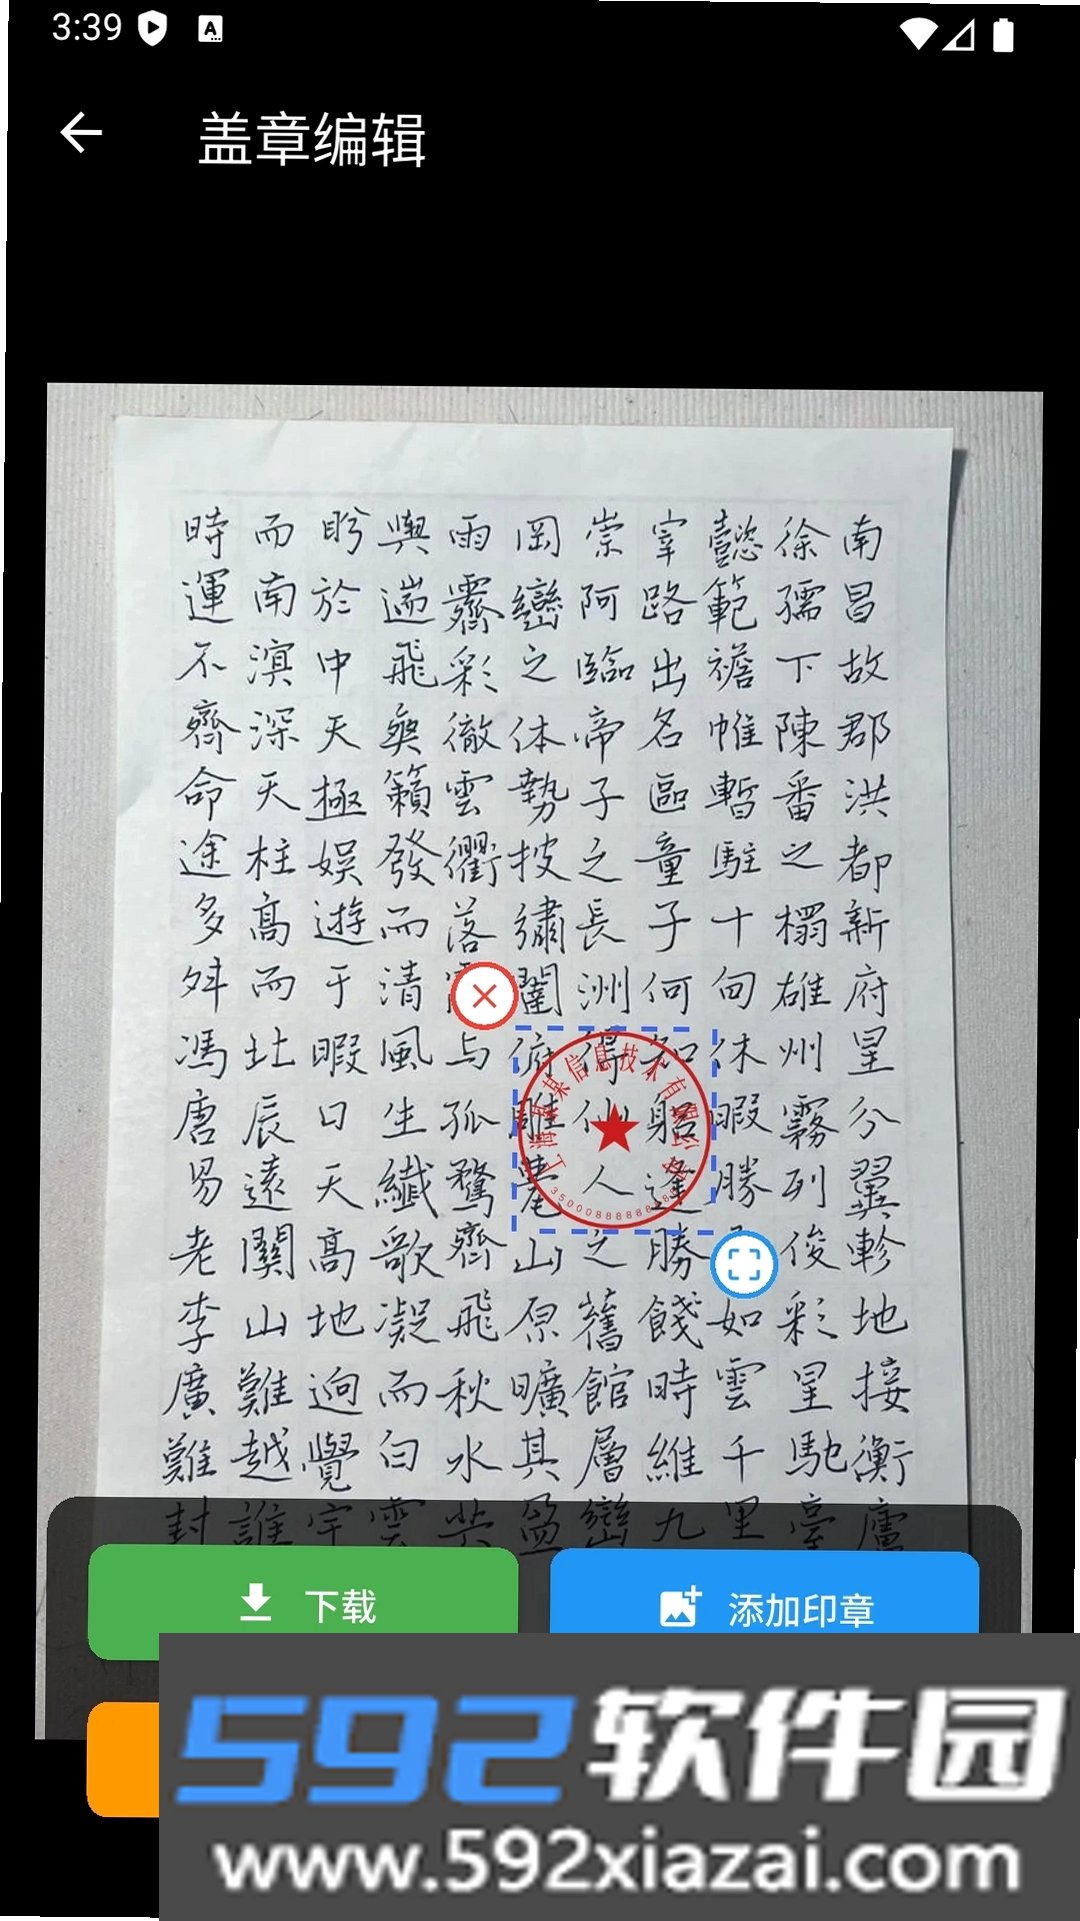 3:39
盖章编辑
南昌故郡洪都新府星分翼軫地接衡廬
徐孺下陳番之榻雄州霧列俊彩星馳臺
懿範襜帷暫駐十旬休暇勝如雲千里
宰路出名區童子何知躬逢勝餞時維九
崇阿臨帝子之長洲得仙人之舊館層巒
岡巒之体勢披繡闥俯雕甍山原曠其盈
雨霽彩徹雲衢落与孤鶩齊飛秋水共
與遄飛爽籟發而清風生纖歌凝而白雲
盻於中天極娛遊于暇日天高地迥覺宇
而南溟深天柱高而北辰遠關山難越誰
時運不齊命途多舛馮唐易老李廣難封
上海某某信息技术有限公司
下载
添加印章
592软件园
www.592xiazai.com